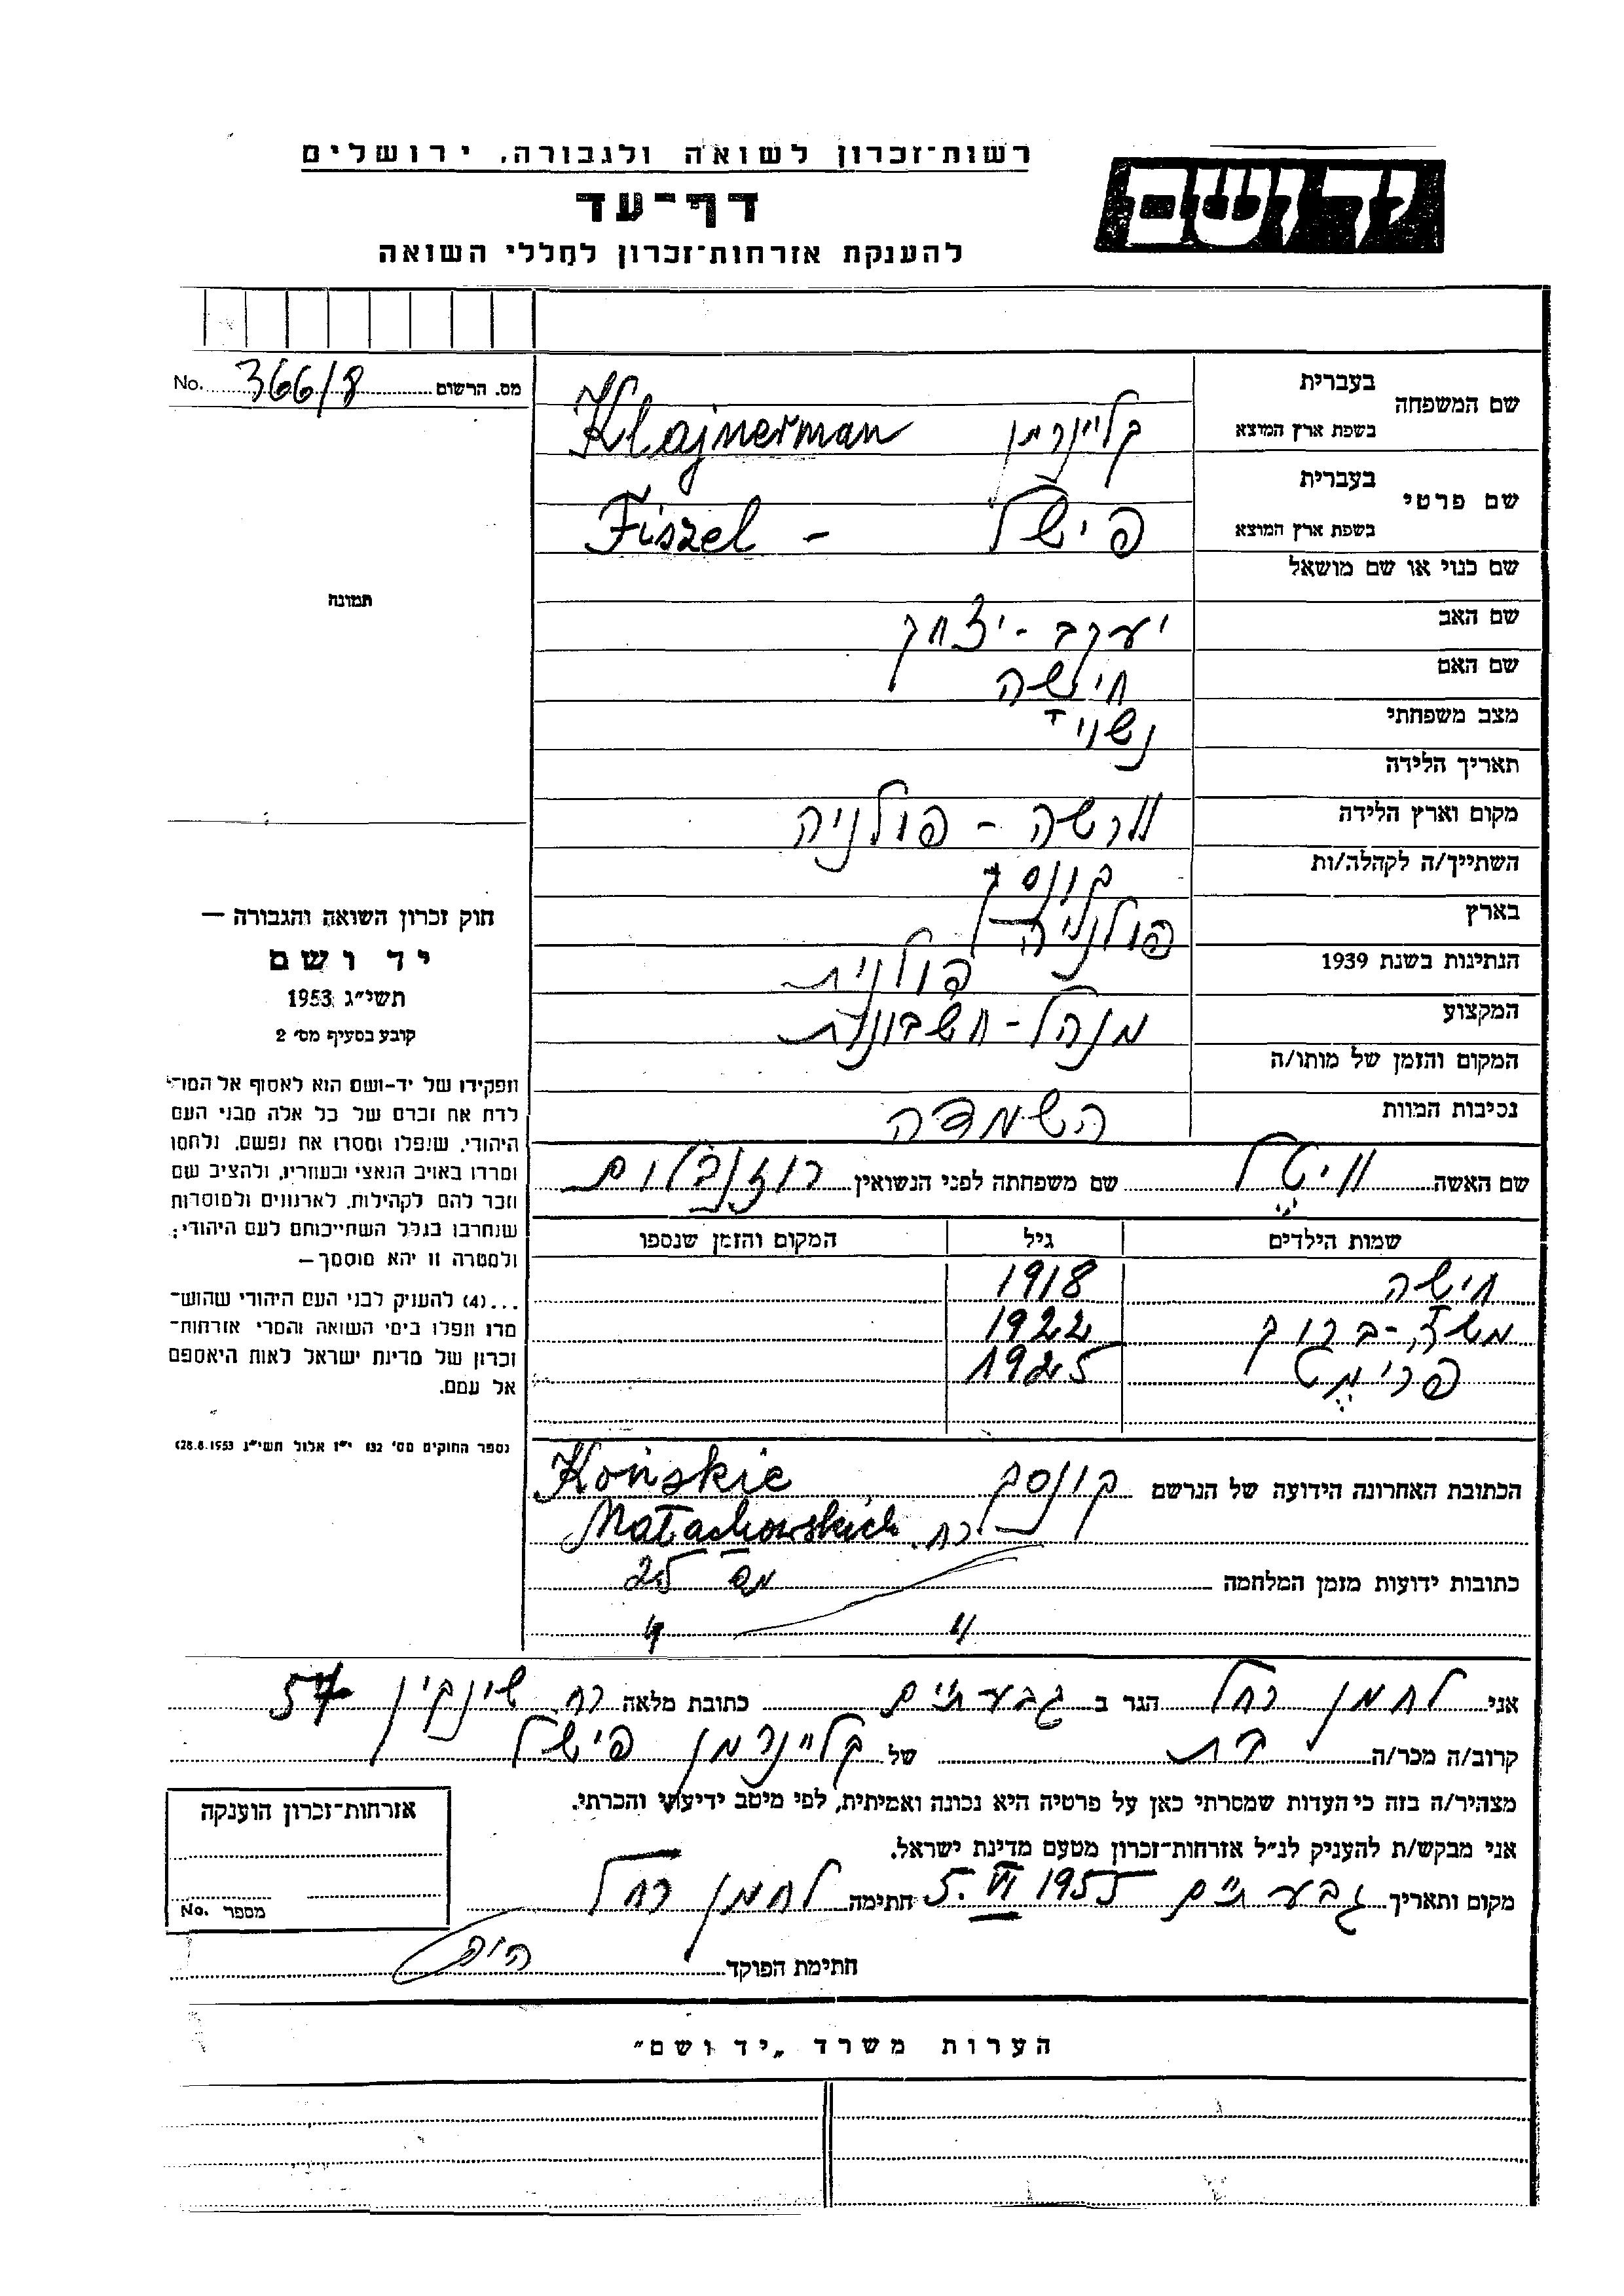 רשות־זכרון לשואה ולגבורה, ירושלים
יד ושם
דף־עד
להענקת אזרחות־זכרון לחללי השואה
No. 366/8 מס. הרשום
שם המשפחה בעברית
בשפת ארץ המוצא קליינרמן Klajnerman
שם פרטי בעברית
בשפת ארץ המוצא פישל - Fiszel
שם כנוי או שם מושאל
שם האב יעקב - יצחק
שם האם חישה
מצב משפחתי נשוי
תאריך הלידה
מקום וארץ הלידה וורשה - פולניה
השתייך/ה לקהלה/ות קונסק
בארץ פולניה
הנתינות בשנת 1939 פולנית
המקצוע מנהל - חשבונות
המקום והזמן של מותו/ה
נסיבות המוות השמדה
שם האשה וויטל שם משפחתה לפני הנשואין רוזנבלום
שמות הילדים גיל המקום והזמן שנספו
חישה 1918
ברוך 1922
פרימט 1925
הכתובת האחרונה הידועה של הנרשם קונסק Końskie
רח. Małachowskich
מס 25
כתובות ידועות מזמן המלחמה
" "
תמונה
חוק זכרון השואה והגבורה —
יד ושם
תשי"ג 1953
קובע בסעיף מס' 2
תפקידו של יד-ושם הוא לאסוף אל המו־
לדת את זכרם של כל אלה מבני העם
היהודי, שנפלו ומסרו את נפשם, נלחמו
ומרדו באויב הנאצי ובעוזריו, ולהציב שם
וזכר להם, לקהילות, לארגונים ולמוסדות
שנחרבו בגלל השתייכותם לעם היהודי;
ולמטרה זו יהא מוסמך—
...(4) להעניק לבני העם היהודי שהוש־
מדו ונפלו בימי השואה והמרי אזרחות־
זכרון של מדינת ישראל לאות היאספם
אל עמם.
(ספר החוקים מס' 132 י"ז אלול תשי"ג 28.8.1953)
אני לחמן רחל הגר ב גבעתיים כתובת מלאה רח. שינקין 54
קרוב/ה מכר/ה בת של קליינרמן פישל
מצהיר/ה בזה כי העדות שמסרתי כאן על פרטיה היא נכונה ואמיתית, לפי מיטב ידיעתי והכרתי.
אני מבקש/ת להעניק לנ"ל אזרחות־זכרון מטעם מדינת ישראל.
מקום ותאריך גבעתיים 5. VI 1955 חתימה לחמן רחל
חתימת הפוקד
אזרחות־זכרון הוענקה
מספר No.
הערות משרד „יד ושם"